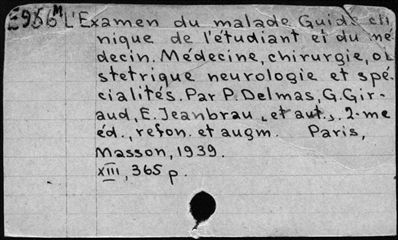 E956ᴹ L'Examen du malade Guide cli
nique de l'étudiant et du mé
decin. Médecine, chirurgie, ob
stetrique neurologie et spé-
cialités. Par P. Delmas, G. Gir-
aud, E. Jeanbrau, et aut., 2-me
éd., refon. et augm. Paris,
Masson, 1939.
XIII, 365 p.